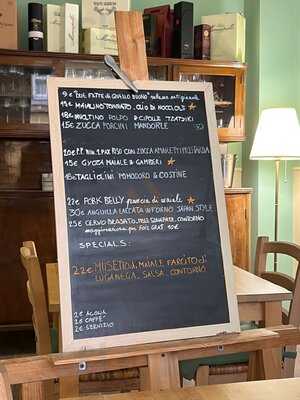 9€ "DUE FETTE DI QUELLO BUONO"
14€ MAIALINO TONNATO, OLIO DI NOCCIOLE
18€ POLPO E CIPOLLE TZATZIKI
15€ ZUCCA PORCINI MANDORLE
20€ RISO CON ZUCCA
15€ GYOZA MAIALE & GAMBERI
16€ TAGLIOLINI POMODORO & COSTINE
22€ PORK BELLY DI MAIALE
30€ ANGUILLA LACCATA INFORNO JAPAN STYLE
25€ CERVO BRASATO, CONTORNO
FOIE GRAS 10€
SPECIALS:
22€ MUSETTO DI MAIALE FARCITO DI
LUGANEGA, SALSA, CONTORNO
2€ ACQUA
2€ CAFFE'
2€ SERVIZIO